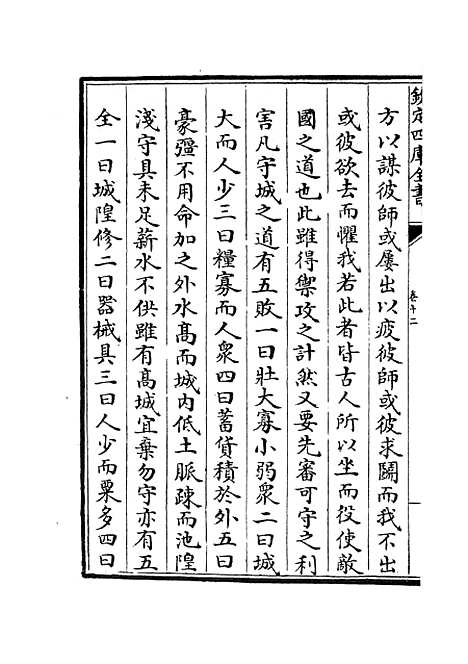 欽定四庫全書
方以謀彼師或屢出以疲彼師或彼求鬬而我不出
或彼欲去而懼我若此者皆古人所以坐而役使敵
國之道也此雖得禦攻之計然又要先審可守之利
害凡守城之道有五敗一曰壯大寡小弱衆二曰城
大而人少三曰糧寡而人衆四曰蓄貨積於外五曰
豪彊不用命加之外水髙而城内低土脈疎而池隍
淺守具未足薪水不供雖有髙城宜棄勿守亦有五
全一曰城隍修二曰器械具三曰人少而粟多四曰